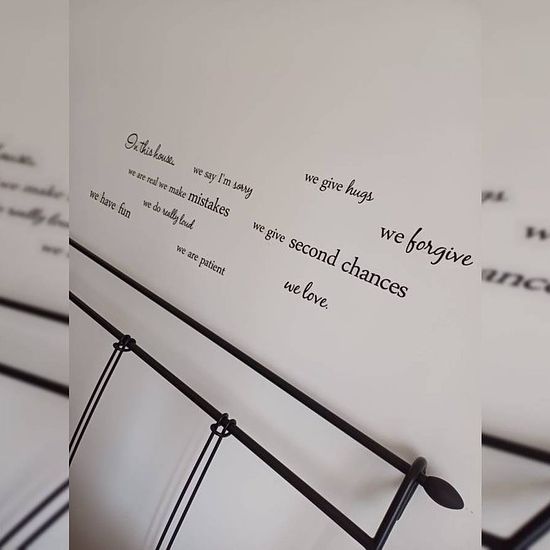 In this house
we say I'm sorry
we are real we make mistakes
we have fun
we do really loud
we are patient
we give hugs
we forgive
we give second chances
we love.